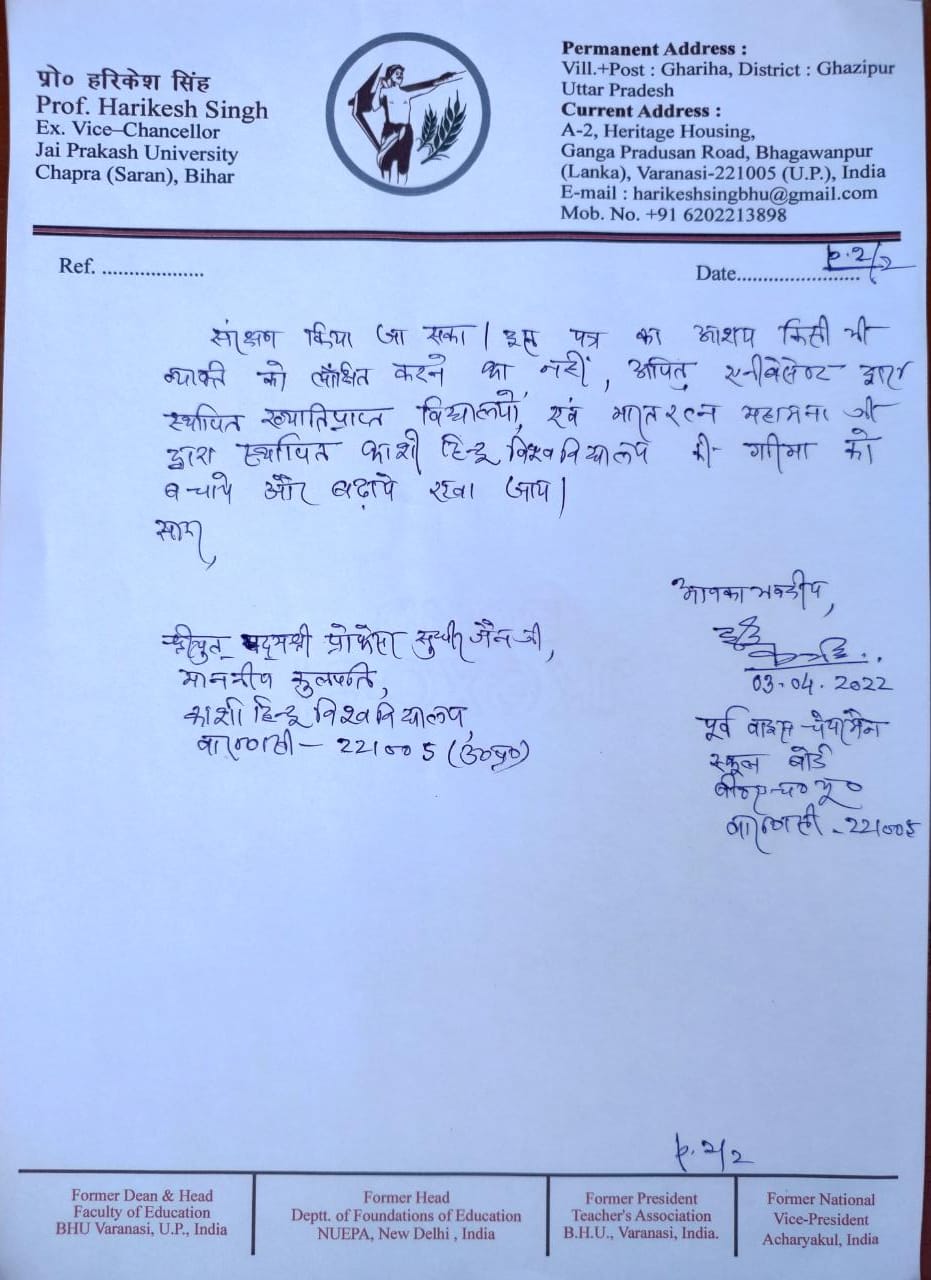 प्रो० हरिकेश सिंह
Prof. Harikesh Singh
Ex. Vice–Chancellor
Jai Prakash University
Chapra (Saran), Bihar
Permanent Address :
Vill.+Post : Ghariha, District : Ghazipur
Uttar Pradesh
Current Address :
A-2, Heritage Housing,
Ganga Pradusan Road, Bhagawanpur
(Lanka), Varanasi-221005 (U.P.), India
E-mail : harikeshsingbhu@gmail.com
Mob. No. +91 6202213898
Ref. ...................
Date....................... p.2/2
संरक्षण किया जा सका। इस पत्र का आशय किसी भी
व्यक्ति को लांक्षित करने का नहीं, अपितु एनीबेसेण्ट द्वारा
स्थापित ख्यातिप्राप्त विद्यालयों, एवं भारतरत्न महामना जी
द्वारा स्थापित काशी हिन्दू विश्वविद्यालय की गरिमा को
बचाये और बढ़ाये रखा जाय।
सादर,
आपका भवदीय,
03-04-2022
पूर्व वाइस-चेयरमैन
स्कूल बोर्ड
बी०एच०यू०
वाराणसी-221005
श्रीयुत् पद्मश्री प्रोफेसर सुधीर जैन जी,
माननीय कुलपति,
काशी हिन्दू विश्वविद्यालय
वाराणसी - 221005 (उ०प्र०)
p.2/2
Former Dean & Head
Faculty of Education
BHU Varanasi, U.P., India
Former Head
Deptt. of Foundations of Education
NUEPA, New Delhi , India
Former President
Teacher's Association
B.H.U., Varanasi, India.
Former National
Vice-President
Acharyakul, India